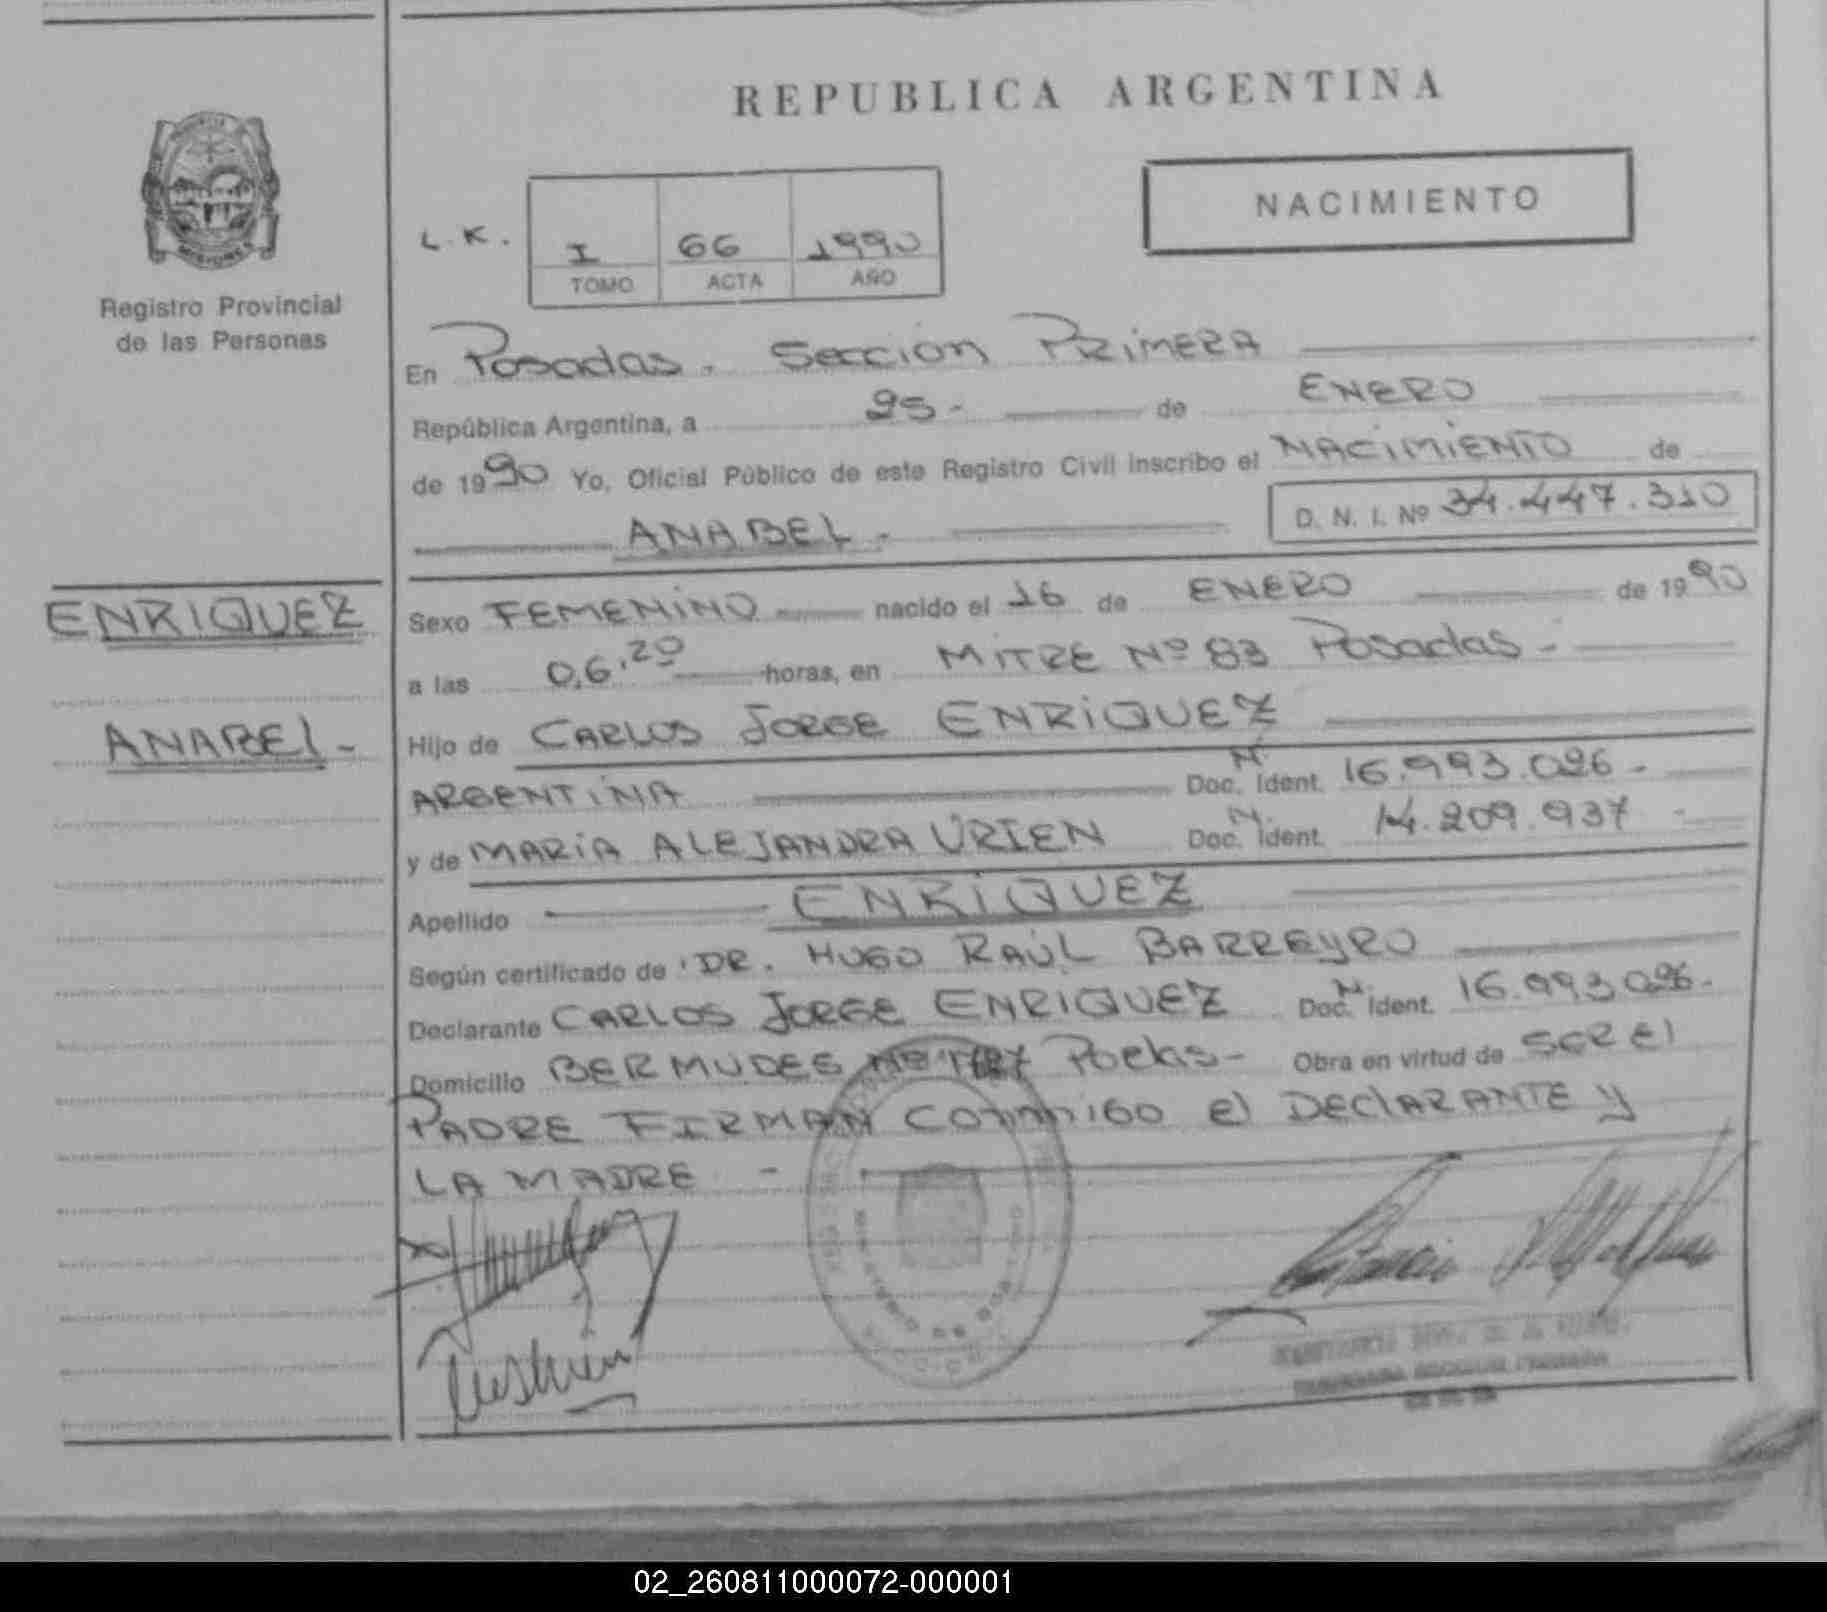 REPUBLICA ARGENTINA
NACIMIENTO
L.K. I 66 1990
TOMO ACTA AÑO
Registro Provincial
de las Personas
En Posadas. Sección PRIMERA
República Argentina, a 25- de ENERO
de 1990 Yo, Oficial Público de este Registro Civil inscribo el NACIMIENTO de
ANABEL- D. N. I. Nº 34.447.310
ENRIQUEZ
ANABEL-
Sexo FEMENINO nacido el 16 de ENERO de 1990
a las 06,20 horas, en MITRE Nº 83 Posadas-
Hijo de CARLOS JORGE ENRIQUEZ
ARGENTINA Doc. Ident. 16.993.026-
y de MARIA ALEJANDRA URIEN Doc. Ident. 14.209.937-
Apellido ENRIQUEZ
Según certificado de DR. HUGO RAÚL BARREYRO
Declarante CARLOS JORGE ENRIQUEZ Doc. Ident. 16.993.026-
Domicilio BERMUDES Nº Obra en virtud de SER El
PADRE FIRMAN CONMIGO El DEClARANTE y
LA MADRE -
02_260811000072-000001